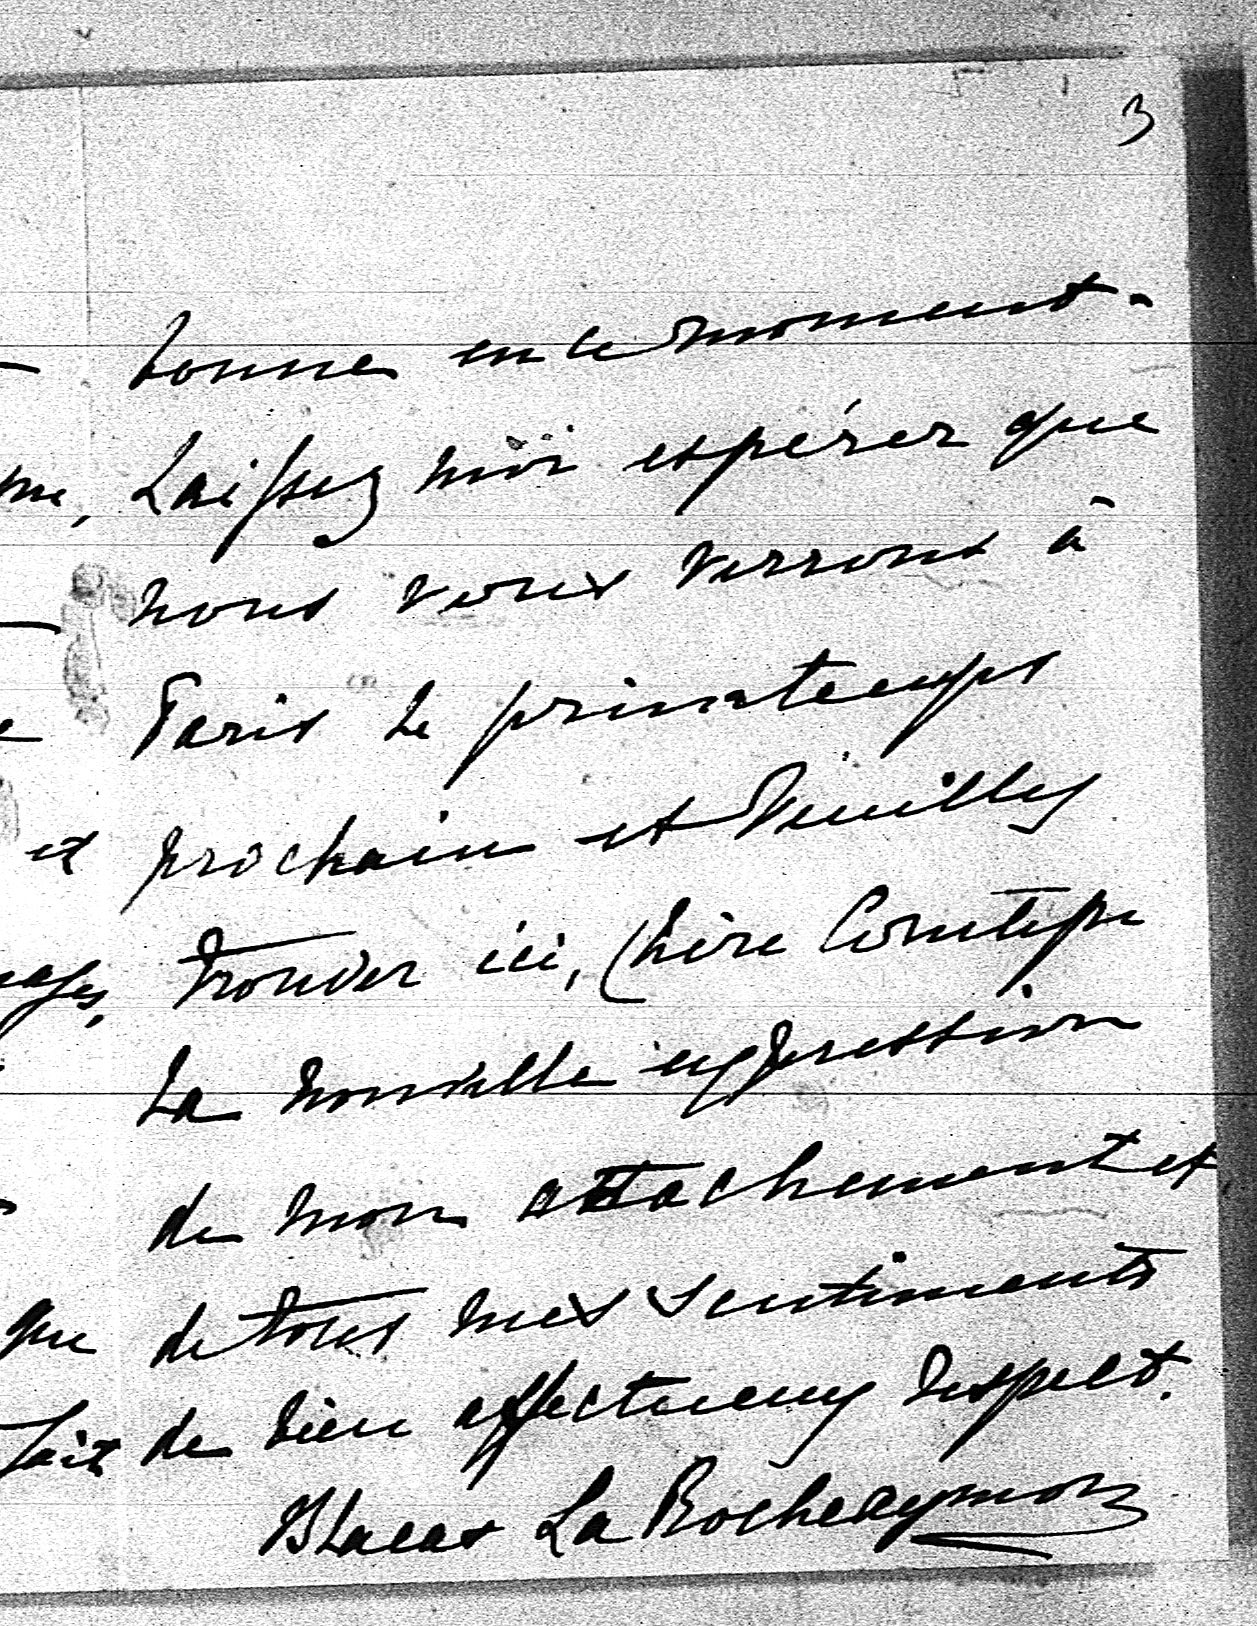 3
bonne en ce moment.
Laissez moi espérer que
nous vous verrons à
Paris le printemps
prochain et veuillez
trouver ici, Chère Comtesse
la nouvelle expression
de mon attachement et
de tous mes sentiments
de bien affectueux respect.
Blacas La Rocheaymon
me,
et
que
fait